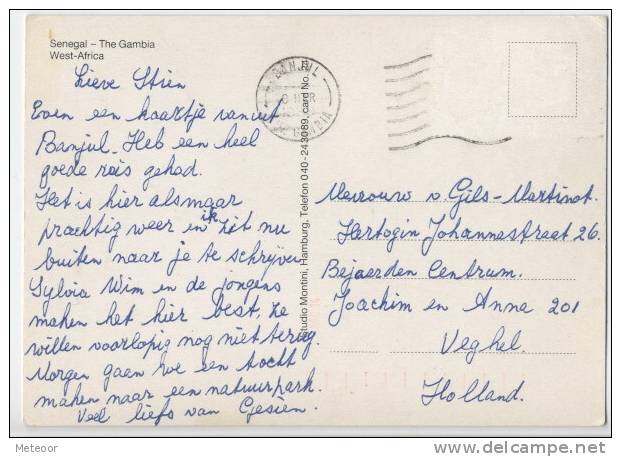 Senegal – The Gambia
West-Africa
Lieve Stien
Even een kaartje vanuit
Banjul. Heb een heel
goede reis gehad.
Het is hier alsmaar
prachtig weer en ik zit nu
buiten naar je te schrijven
Sylvia Wim en de jongens
maken het hier best. Ze
willen voorlopig nog niet terug.
Morgen gaan we een tocht
maken naar een natuurpark.
Veel liefs van Gesien.
BANJUL
Studio Montini, Hamburg, Telefon 040-243089, card No.
Mevrouw v. Gils-Martinot.
Hertogin Johannastraat 26.
Bejaarden Centrum.
Joachim en Anna 201
Veghel.
Holland.
Meteoor
delcampe.net